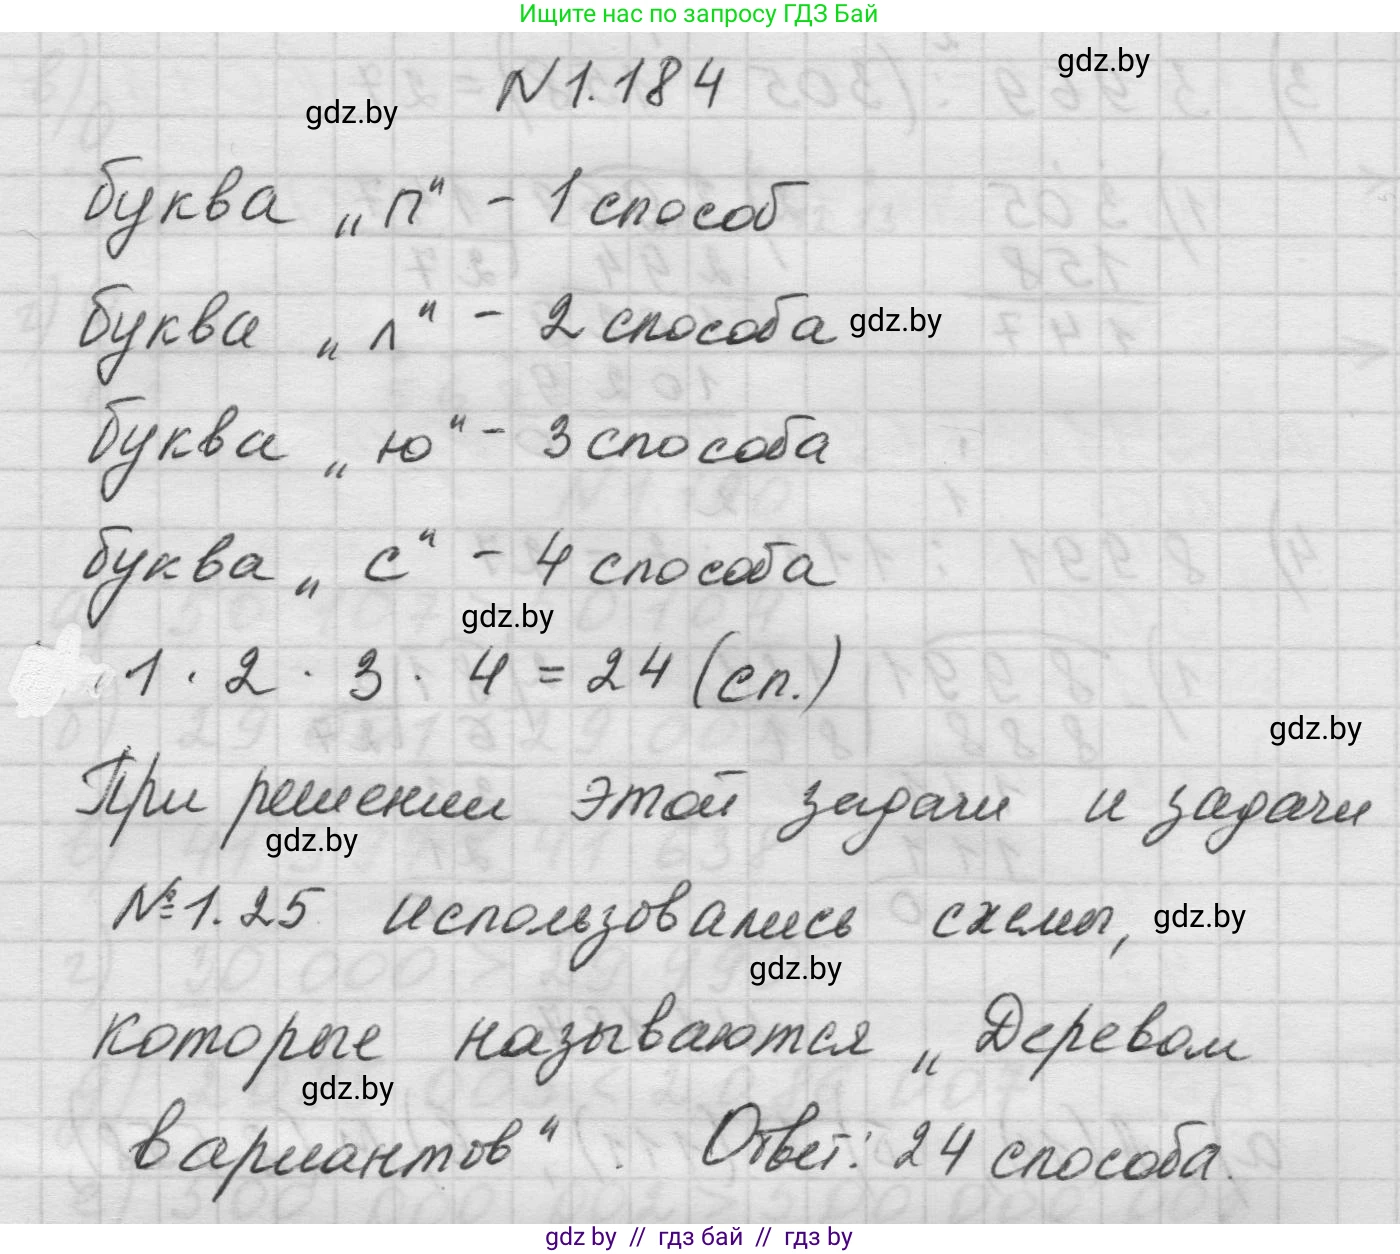 Ищите нас по запросу ГДЗ Бай
№1.184
gdz.by
gdz.by
буква „п" - 1 способ
буква „л" - 2 способа gdz.by
буква „ю" - 3 способа
буква „с" - 4 способа
gdz.by
1 · 2 · 3 · 4 = 24 (сп.)
gdz.by
При решении этой задачи и задачи
gdz.by
№1.25 использовались схемы, gdz.by
gdz.by
которые называются „Деревом
gdz.by
вариантов". Ответ: 24 способа.
gdz by // гдз бай // гдз by